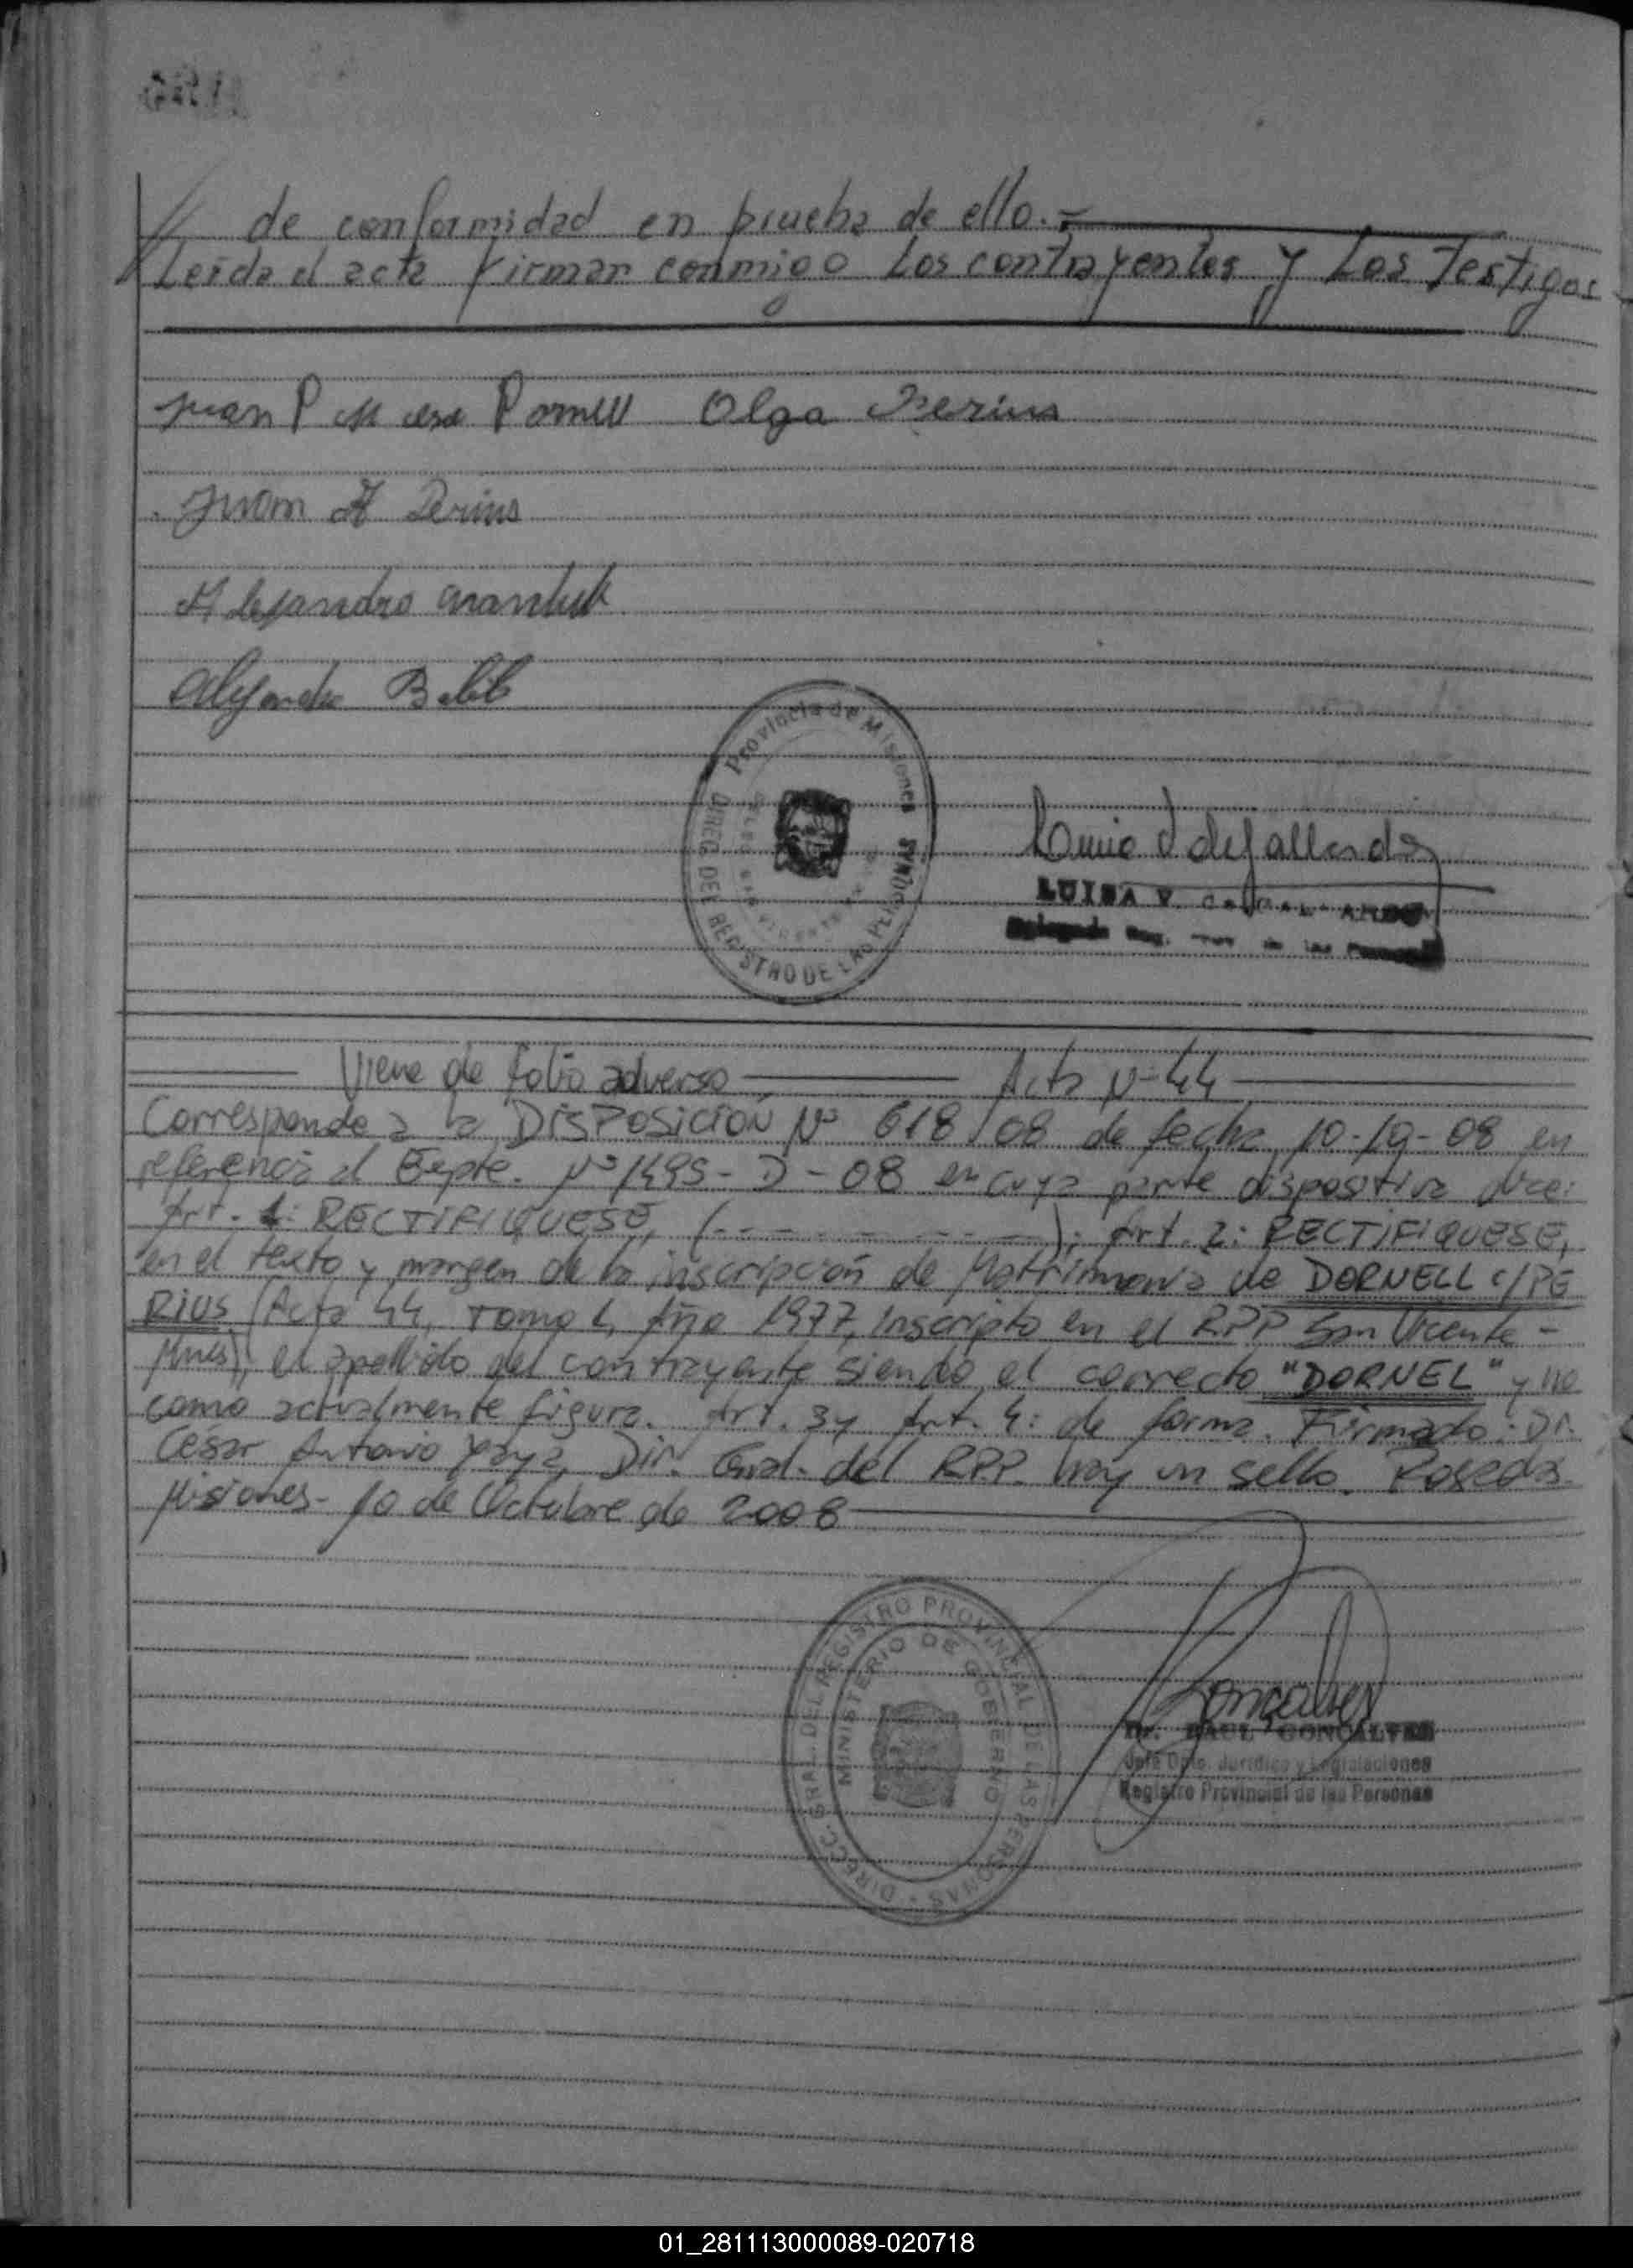 // de conformidad en prueba de ello.-
Leída el acta firman conmigo Los contrayentes y Los Testigos
Juan P Dornell Olga Perius
Juan A Perius
Alejandro
Alejandro
Provincia de Misiones
DIREC. DEL REGISTRO DE LAS PERSONAS
LUISA V.
Delegada Reg. Prov. de las Personas
Viene de folio adverso Acta Nº 44
Corresponde a la DISPOSICIÓN Nº 618/08 de fecha 10-10-08 en
referencia al Expte. Nº 1495-D-08 en cuya parte dispositiva dice:
Art. 1: RECTIFIQUESE, (- - - - - - - -); Art. 2: RECTIFIQUESE,
en el texto y margen de la inscripción de Matrimonio de DORNELL c/PE
RIUS (Acta 44, Tomo 1, Año 1977, Inscripto en el RPP San Vicente -
Mnes), el apellido del contrayente siendo el correcto "DORNEL" y no
como actualmente figura. Art. 3 y Art. 4: de forma. Firmado: Dr.
César Antonio Yaya, Dir. Gral. del RPP. hay un sello. Posadas.
Misiones- 10 de Octubre de 2008
DIRECC. GRAL. DEL REGISTRO PROVINCIAL DE LAS PERSONAS
MINISTERIO DE GOBIERNO
Goncalves
Dr. RAUL GONCALVES
Jefe Dpto. Jurídico y Legislaciones
Registro Provincial de las Personas
01_281113000089-020718